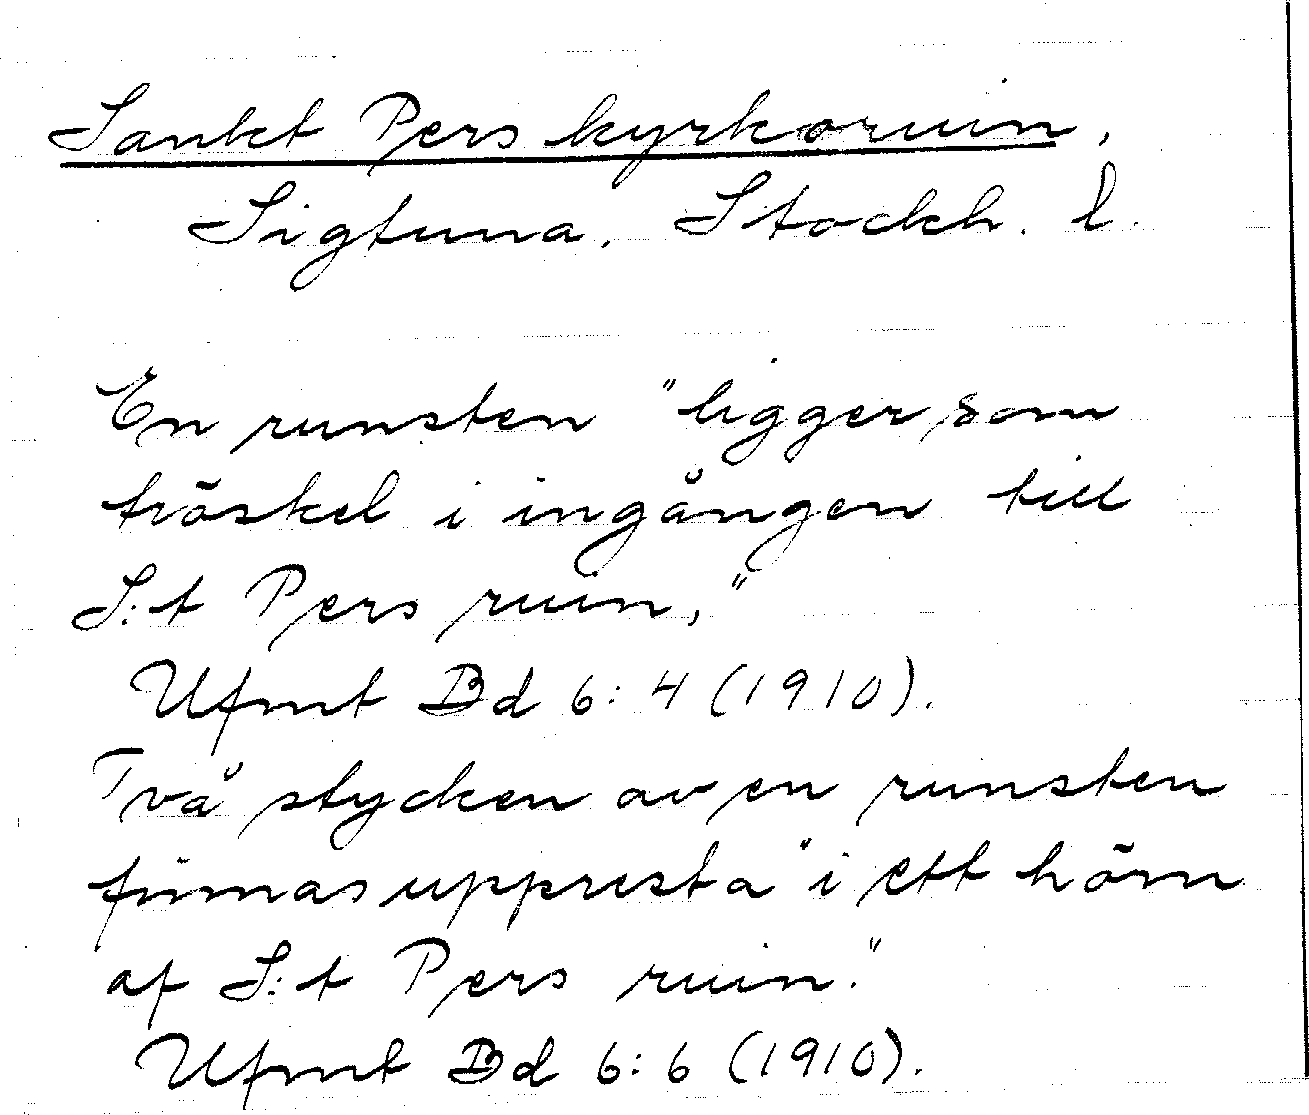 Sankt Pers kyrkoruin,
Sigtuna. Stockh. l.
En runsten "ligger som
tröskel i ingången till
S:t Pers ruin,"
Ufmt Bd 6:4 (1910).
Två stycken av en runsten
finnas uppresta "i ett hörn
af S:t Pers ruin."
Ufmt Bd 6:6 (1910).